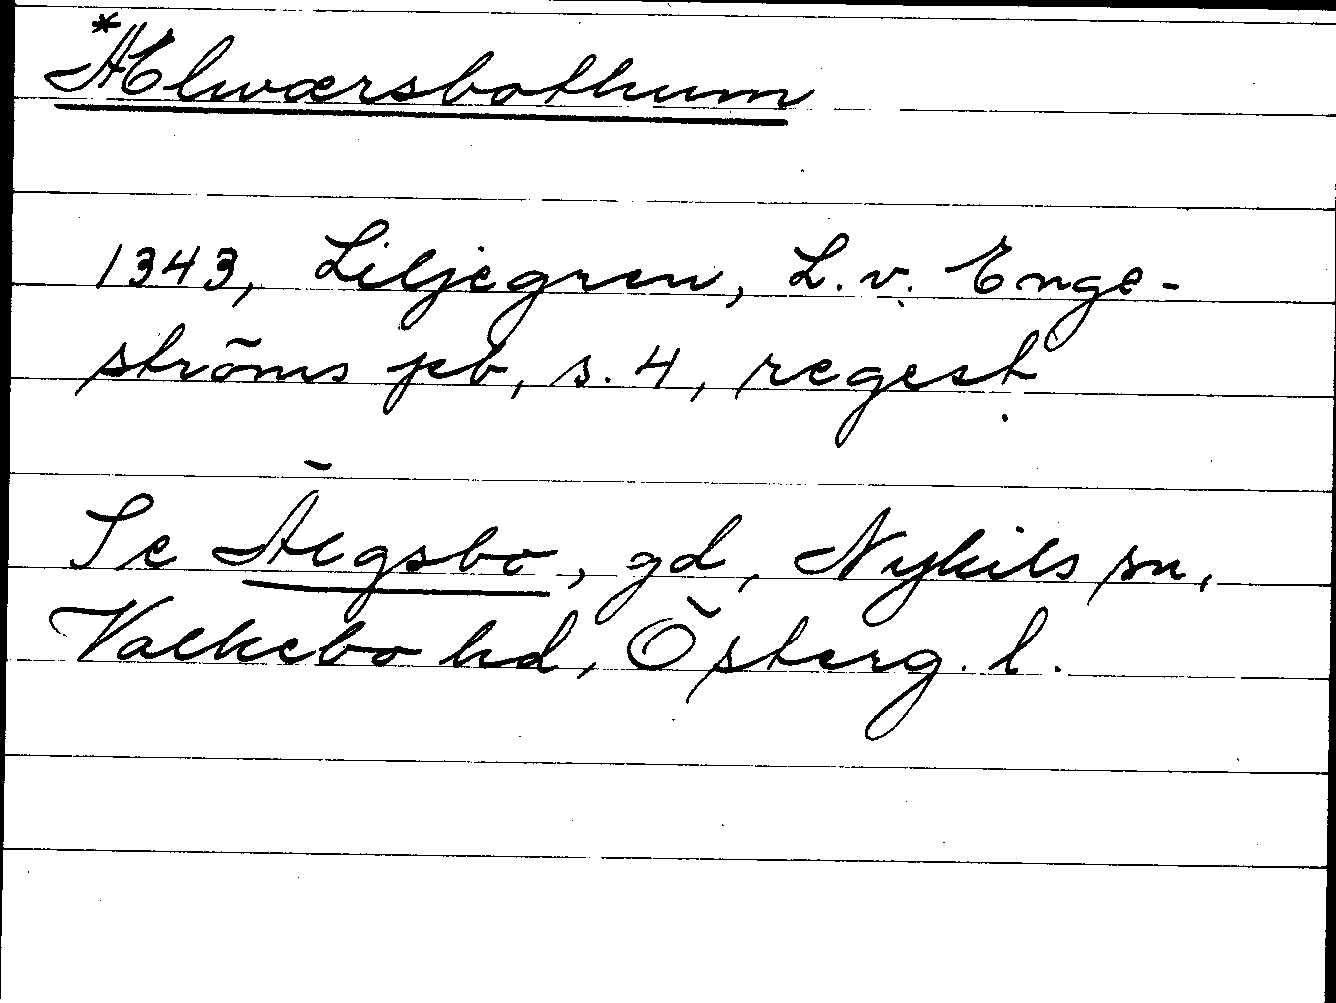 *Ælwærsbothum
1343, Liljegren, L. v. Enge-
ströms pb, s. 4, regest.
Se Älgsbo, gd, Nykils sn,
Valkebo hd, Österg. l.